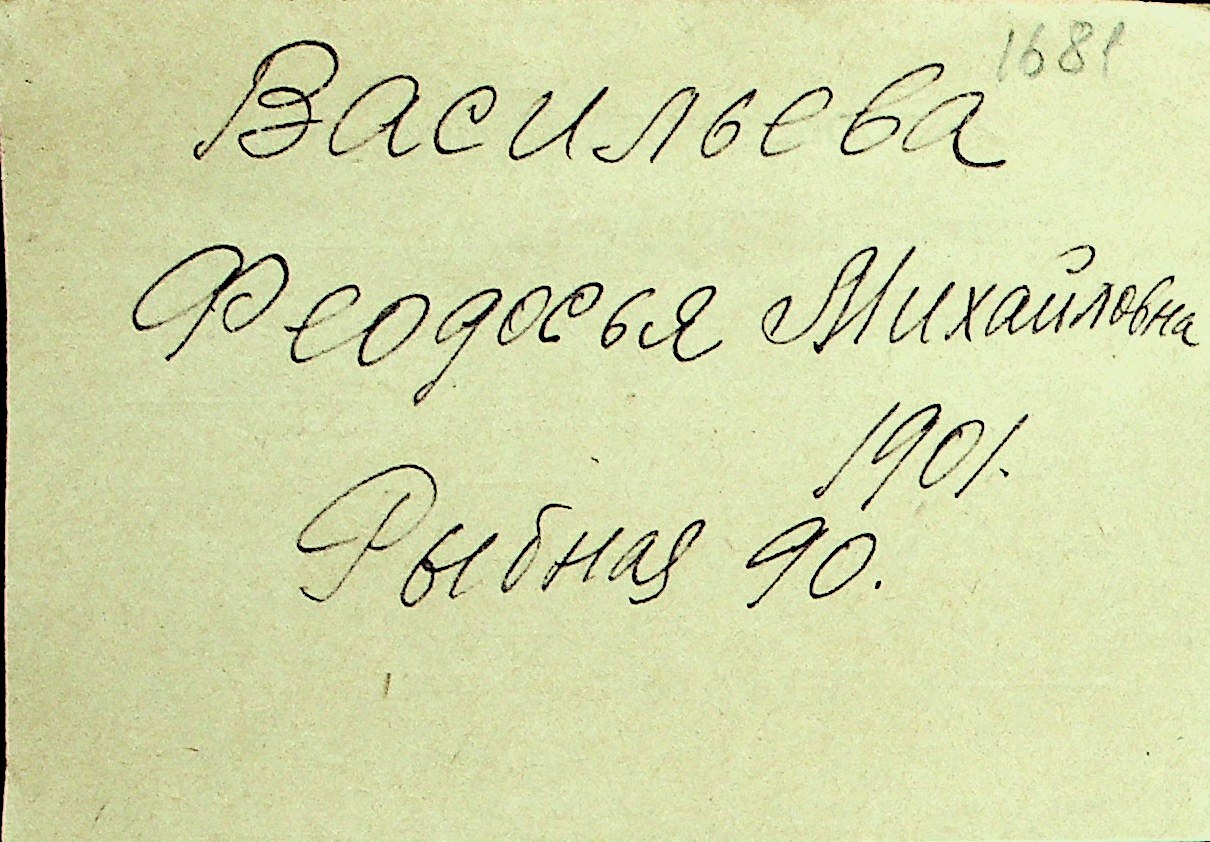 1681
Васильева
Феодосья Михайловна
1901.
Рыбная 90.